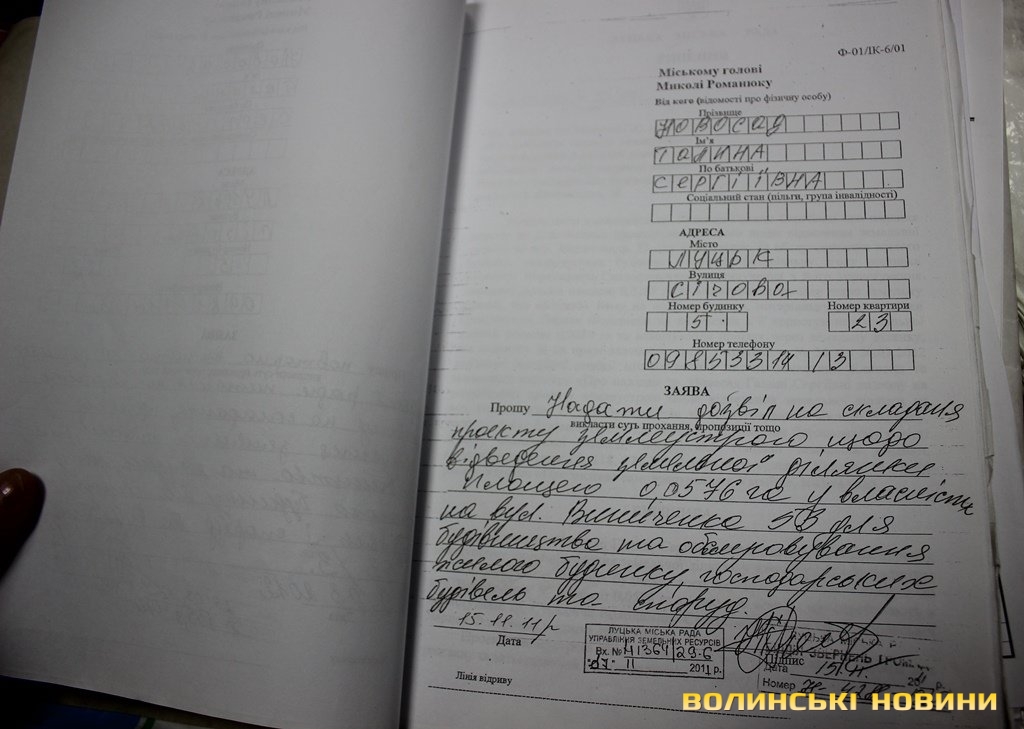 Ф-01/ІК-6/01
Міському голові
Миколі Романюку
Від кого (відомості про фізичну особу)
Прізвище
Новосад
Ім'я
Галина
По батькові
Сергіївна
Соціальний стан (пільги, група інвалідності)
АДРЕСА
Місто
Луцьк
Вулиця
Січова
Номер будинку Номер квартири
5 23
Номер телефону
ЗАЯВА
Прошу Надати дозвіл на складаня
викласти суть прохання, пропозиції тощо
проекту землеустрою щодо
відведення земельної ділянки
площею 0,0576 га у власність
на вул. Винниченка 53 для
будівництва та обслуговування
жилого будинку господарських
будівель та споруд.
15.11.11р
Дата
ЛУЦЬКА МІСЬКА РАДА
УПРАВЛІННЯ ЗЕМЕЛЬНИХ РЕСУРСІВ
Вх. № 29-6
"17" 11 2011 р.
Підпис
Дата 15.11.
Номер
Лінія відриву
ВОЛИНСЬКІ НОВИНИ